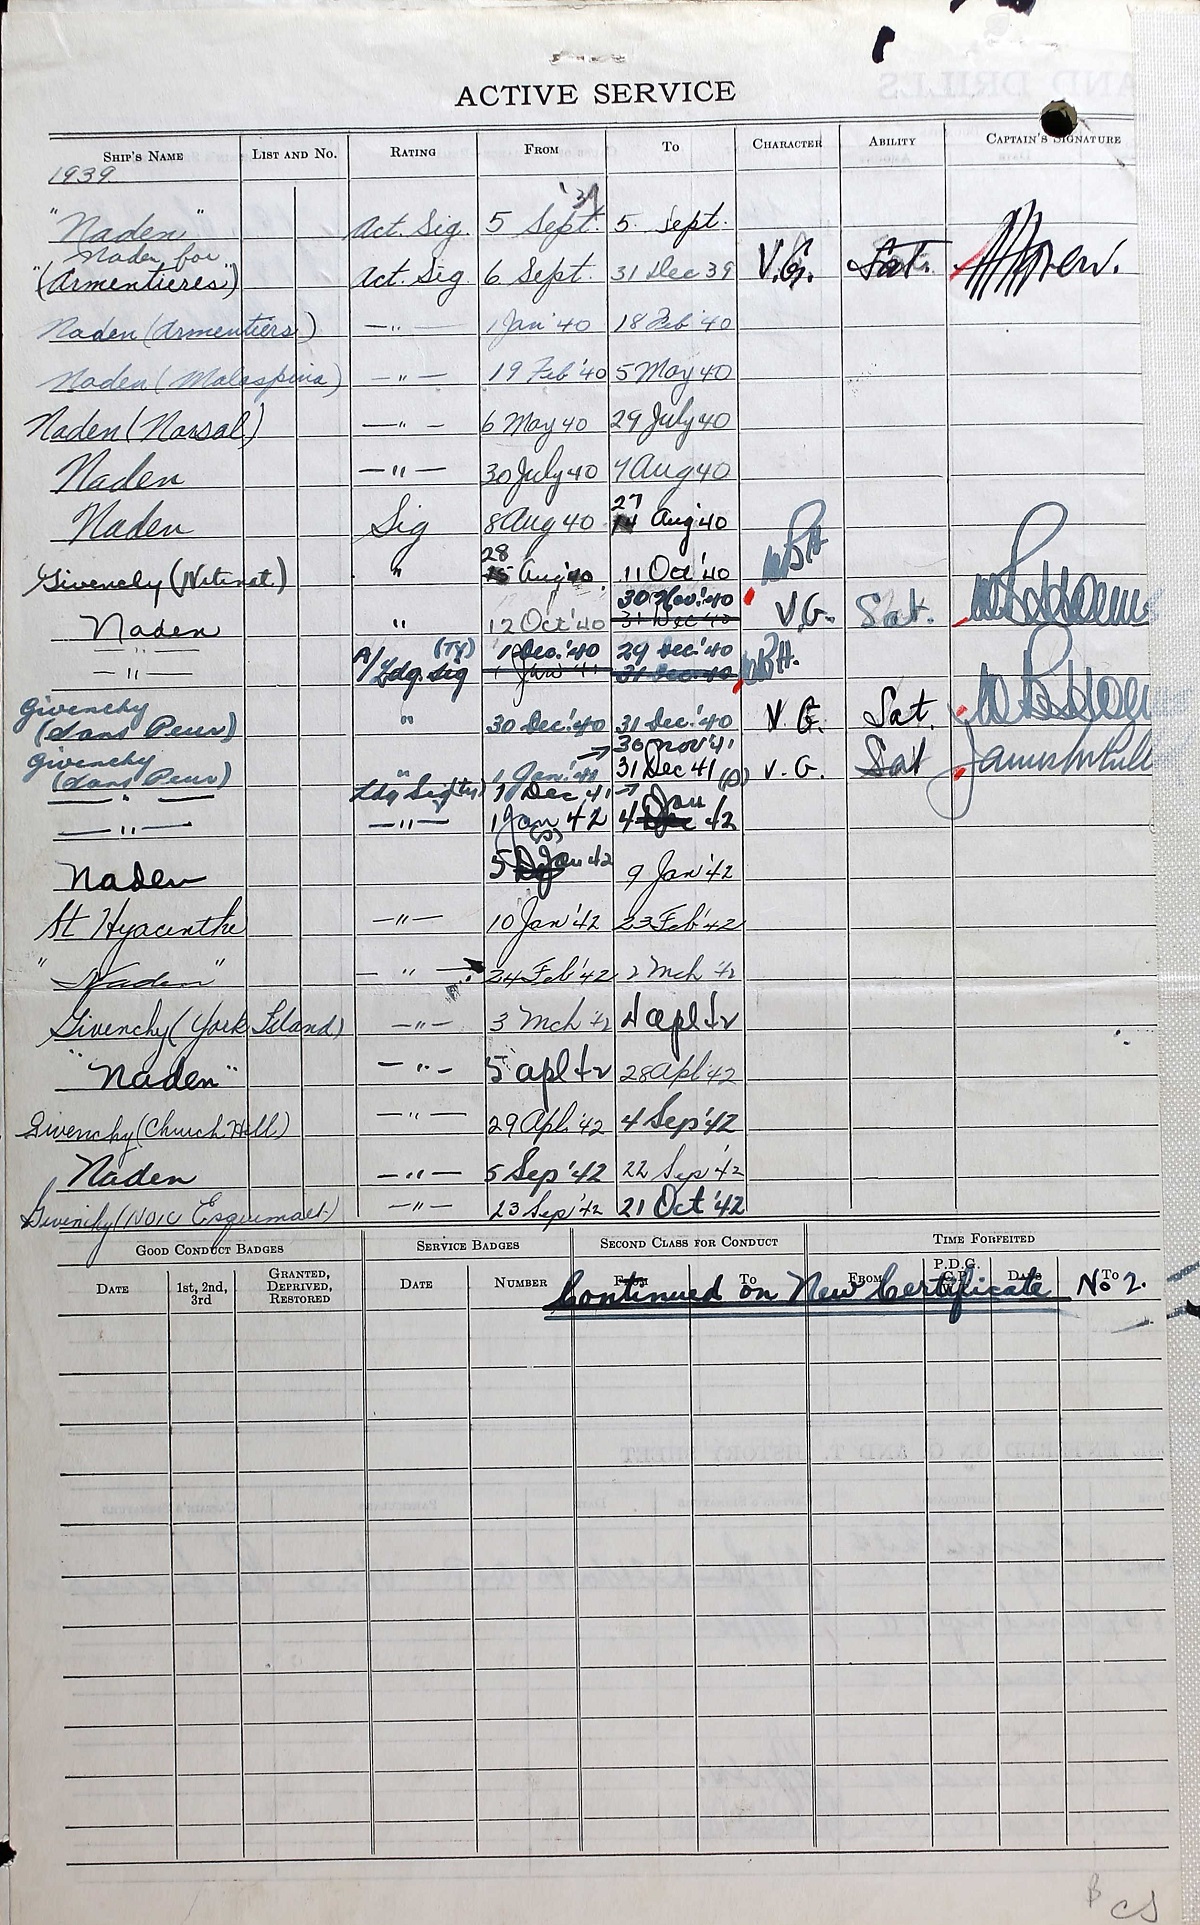 ACTIVE SERVICE
SHIP'S NAME LIST AND NO. RATING FROM TO CHARACTER ABILITY CAPTAIN'S SIGNATURE
1939
'39
"Naden" Act. Sig. 5 Sept. 5. Sept.
Naden for
"(Armentieres") Act. Sig. 6 Sept. 31 Dec 39 V.G. Sat.
Naden (Armentiers) —"— 1 Jan '40 18 Feb '40
Naden (Malaspina) —"— 19 Feb '40 5 May 40
Naden (Norsal) —"— 6 May 40 29 July 40
Naden —"— 30 July 40 7 Aug 40
27
Naden Sig 8 Aug 40 14 Aug '40
28
Givenchy (Nitinat) " 15 Aug '40. 11 Oct '40 WBH
30 Nov. '40
Naden " 12 Oct '40 31 Dec 40 V.G. Sat.
(Ty) 1 Dec. '40 29 Dec. '40
—"— A/Ldg. Sig 31 Dec. 40 WBH.
Givenchy
(Sans Peur) " 30 Dec. '40 31 Dec. '40 V.G. Sat.
Givenchy → 30 Nov '41
(Sans Peur) " 1 Jan. '41 31 Dec 41 (D) V.G. Sat
—"— Ldg Sig (Ty) 1 Dec 41 →
Jan
—"— —"— 1 Jan 42 4 Dec 42
Naden 5 Jan 42 9 Jan '42
St Hyacinthe —"— 10 Jan '42 23 Feb '42
"Naden" —"— 24 Feb '42 2 Mch '42
Givenchy (York Island) —"— 3 Mch '42 4 Apl 42
"Naden" —"— 5 Apl 42 28 Apl '42
Givenchy (Church Hill) —"— 29 Apl. '42 4 Sep '42
Naden —"— 5 Sep '42 22 Sep '42
Givenchy (NOIC Esquimalt) —"— 23 Sep '42 21 Oct '42
GOOD CONDUCT BADGES SERVICE BADGES SECOND CLASS FOR CONDUCT TIME FORFEITED
DATE 1st, 2nd, 3rd GRANTED, DEPRIVED, RESTORED DATE NUMBER FROM TO FROM P.D.G. C.P. DAYS TO
Continued on New Certificate No 2.
B CS